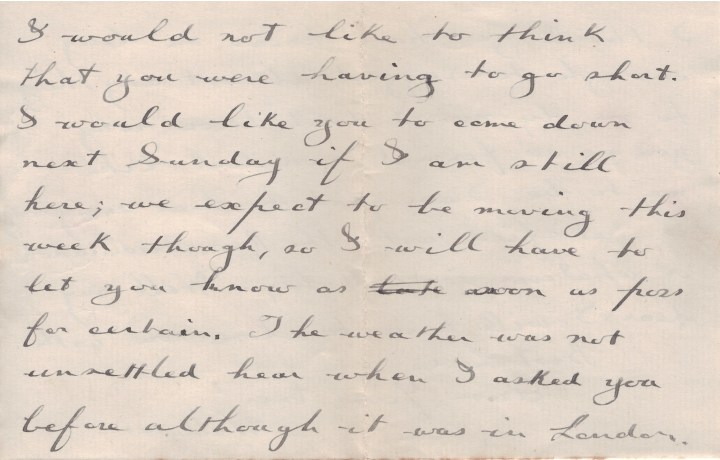 I would not like to think
that you were having to go short.
I would like you to come down
next Sunday if I am still
here; we expect to be moving this
week though, so I will have to
let you know as late soon as poss
for certain. The weather was not
unsettled hear when I asked you
before although it was in London.